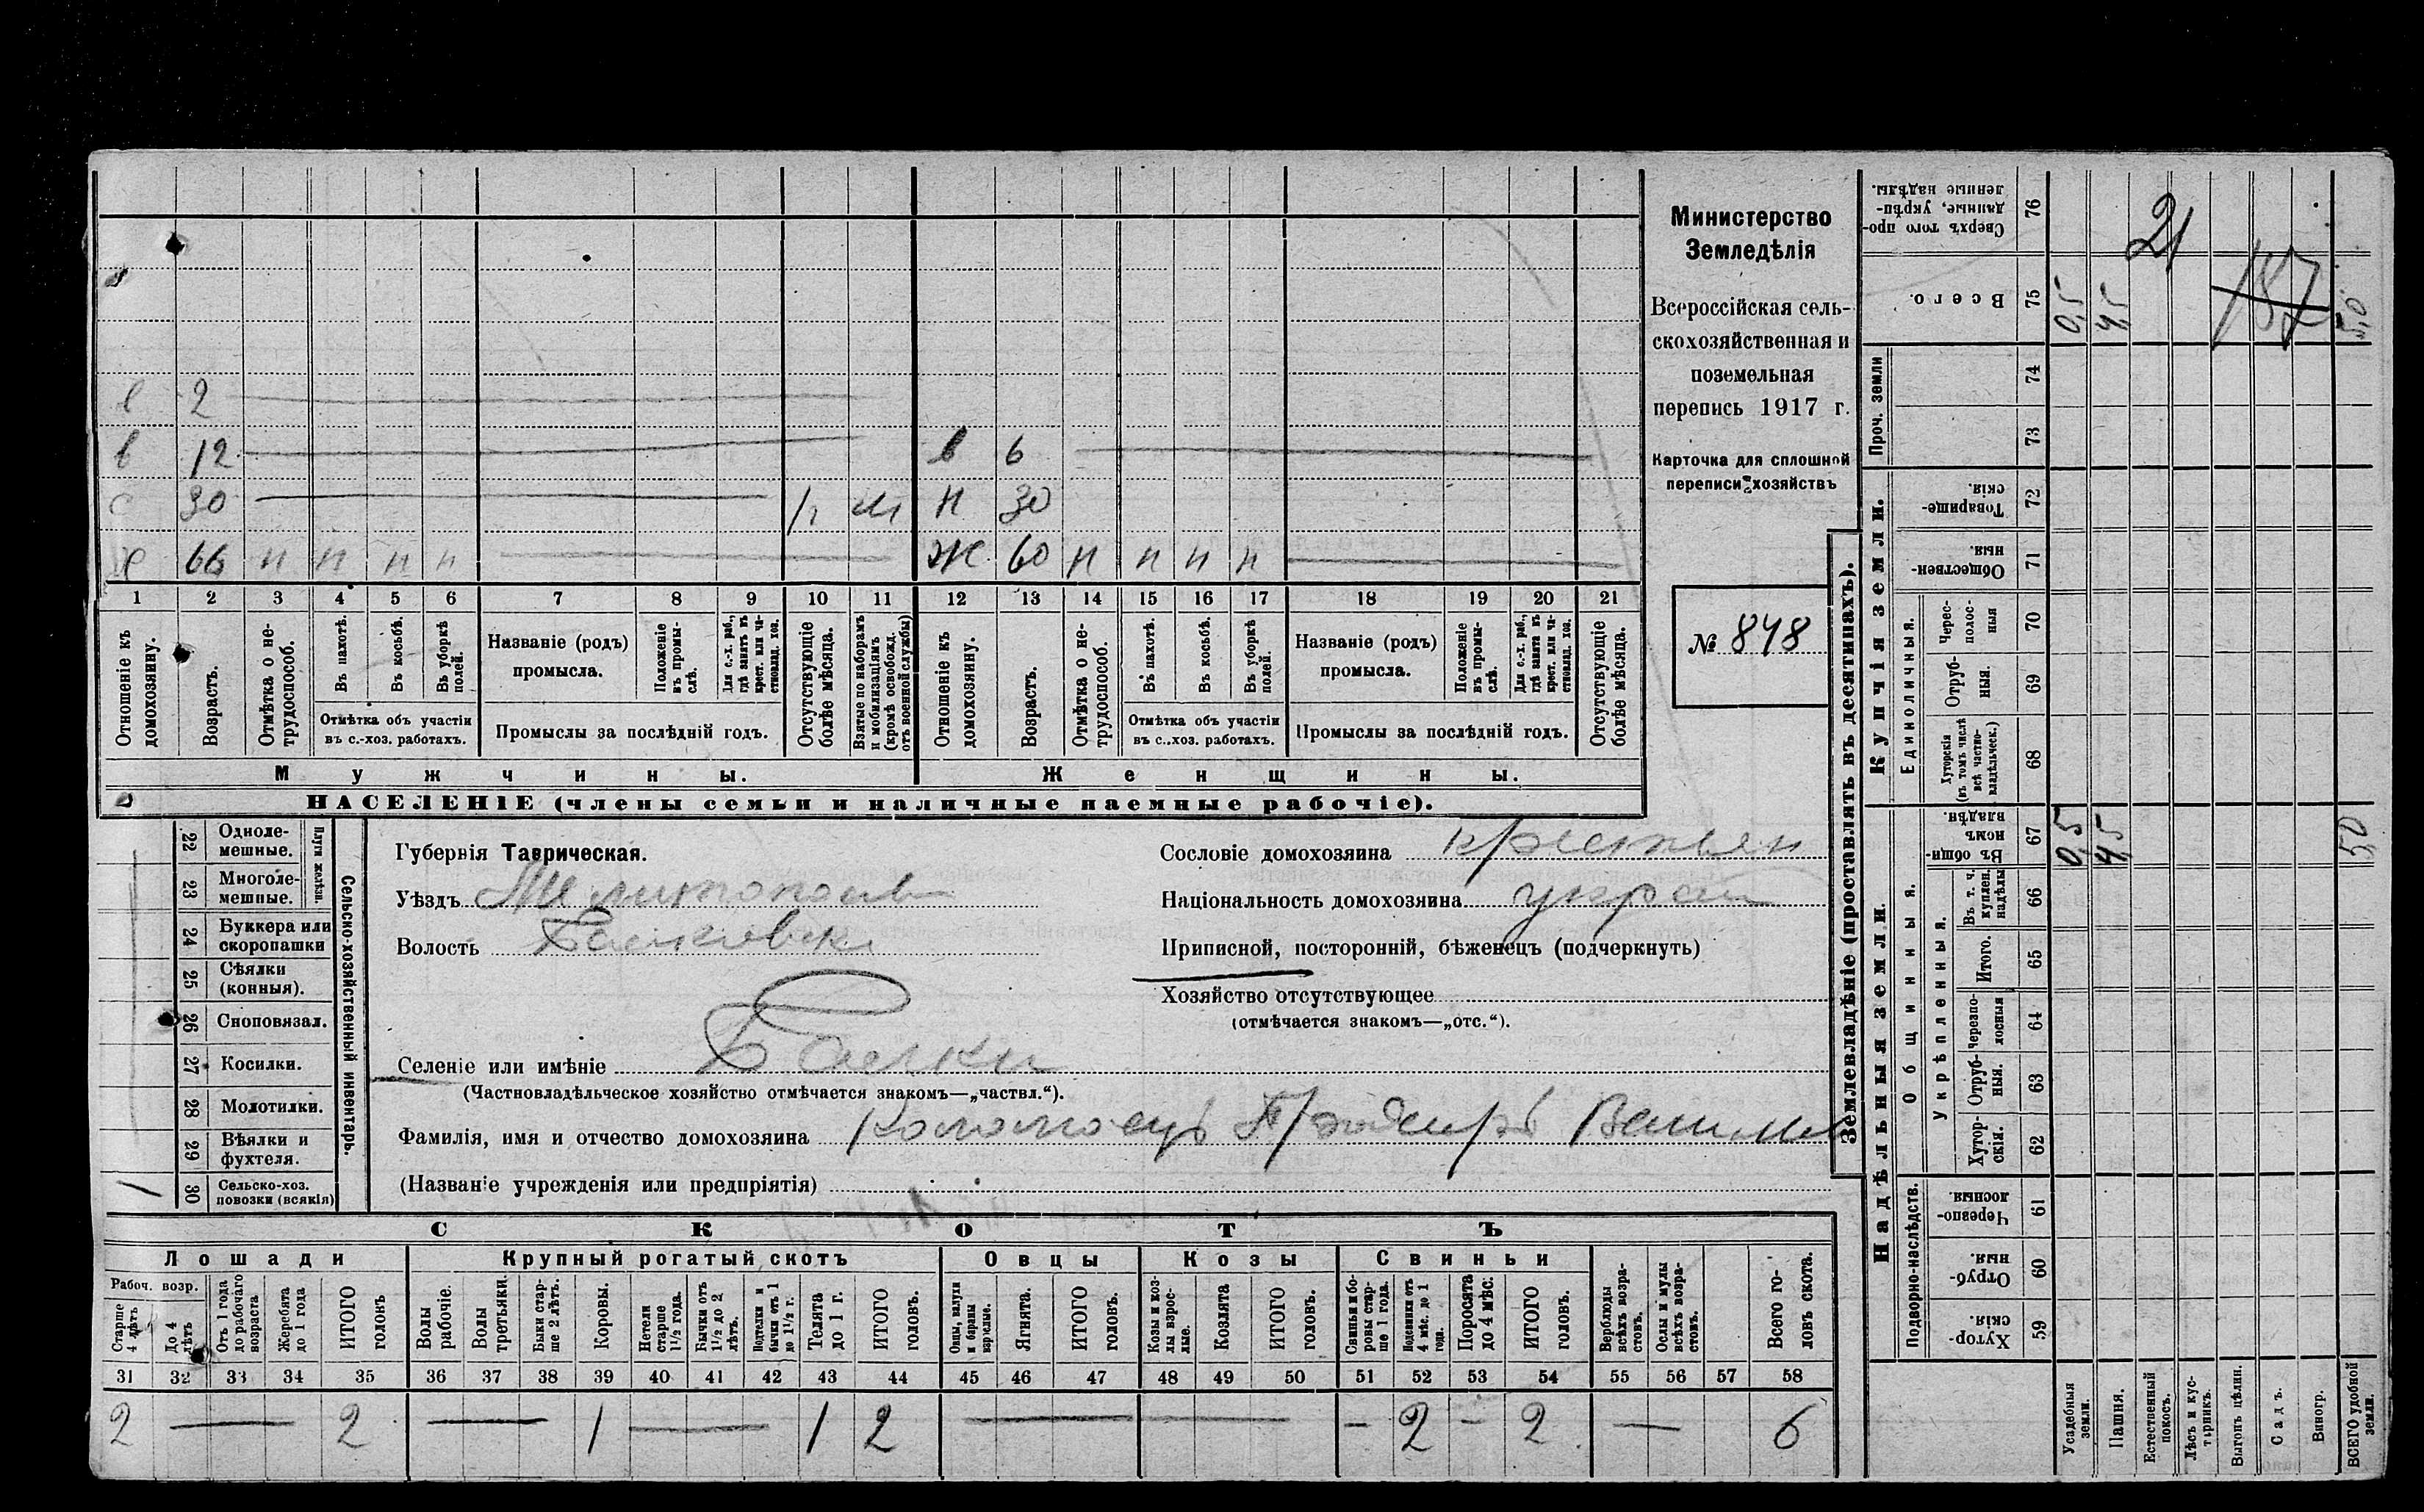 в 2
в 12 в 6
с 30 м н 30
х 66 н н н н ж 60 н н н н
1 2 3 4 5 6 7 8 9 10 11 12 13 14 15 16 17 18 19 20 21
Отношеніе къ домохозяину.
Возрастъ.
Отмѣтка о не-
трудоспособ.
Въ пахотѣ.
Въ косьбѣ.
Въ уборкѣ
полей.
Отмѣтка объ участіи
въ с.-хоз. работахъ.
Названіе (родъ)
промысла.
Положеніе
въ промы-
слѣ.
Для с.-х. раб.,
гдѣ занятъ въ
крест. или ча-
стновлад. хоз.
Промыслы за послѣдній годъ.
Отсутствующіе
болѣе мѣсяца.
Взятые по наборамъ
и мобилизаціямъ
(кромѣ освобожд.
отъ военной службы)
Отношеніе къ
домохозяину.
Возрастъ.
Отмѣтка о не-
трудоспособ.
Въ пахотѣ.
Въ косьбѣ.
Въ уборкѣ
полей.
Отмѣтка объ участіи
въ с..хоз. работахъ.
Названіе (родъ)
промысла.
Положеніе
въ промы-
слѣ.
Для с.-х. раб.,
гдѣ занятъ въ
крест. или ча-
стновлад. хоз.
Промыслы за послѣдній годъ.
Отсутствующіе
болѣе мѣсяца.
Мужчины.
Женщины.
НАСЕЛЕНІЕ (члены семьи и наличные наемные рабочіе).
Министерство
Земледѣлія
Всероссійская сель-
скохозяйственная и
поземельная
перепись 1917 г.
Карточка для сплошной
переписи хозяйствъ
№ 848
22 Одноле-
мешные.
23 Многоле-
мешные.
Плуги желѣзн.
24 Буккера или
скоропашки
25 Сѣялки
(конныя).
26 Сноповязал.
27 Косилки.
28 Молотилки.
29 Вѣялки и
фухтеля.
1 30 Сельско-хоз.
повозки (всякія)
Сельско-хозяйственный инвентарь.
Губернія Таврическая.
Уѣздъ Мелитополь
Волость Балковск
Селеніе или имѣніе Балки
(Частновладѣльческое хозяйство отмѣчается знакомъ—„частвл.“).
Фамилія, имя и отчество домохозяина Коломоецъ
(Названіе учрежденія или предпріятія)
Сословіе домохозяина крестьян
Національность домохозяина украи
Приписной, посторонній, бѣженецъ (подчеркнуть)
Хозяйство отсутствующее
(отмѣчается знакомъ—„отс.“).
СКОТЪ
Лошади Крупный рогатый скотъ Овцы Козы Свиньи
Рабоч. возр.
Старше
4 лѣтъ
До 4
лѣтъ
Отъ 1 года
до рабочаго
возраста
Жеребята
до 1 года
ИТОГО
головъ
Волы
рабочіе.
Волы
третьяки.
Быки стар-
ше 2 лѣтъ.
Коровы.
Нетели
старше
1½ года.
Бычки отъ
1½ до 2
лѣтъ.
Подтелки и
бычки отъ 1
до 1½ г.
Телята
до 1 г.
ИТОГО
головъ.
Овцы, валухи
и бараны
взрослые.
Ягнята.
ИТОГО
головъ.
Козы и коз-
лы взрос-
лые.
Козлята
ИТОГО
головъ.
Свиньи и бо-
ровы стар-
ше 1 года.
Подсвинки отъ
4 мѣс. до 1
года.
Поросята
до 4 мѣс.
ИТОГО
головъ.
Верблюды
всѣхъ возра-
стовъ.
Ослы и мулы
всѣхъ возра-
стовъ.
Всего го-
ловъ скота.
31 32 33 34 35 36 37 38 39 40 41 42 43 44 45 46 47 48 49 50 51 52 53 54 55 56 57 58
2 — 2 — 1 — 1 2 — — 2 — 2 — 6
Землевладѣніе (проставлять въ десятинахъ).
Надѣльныя земли.
Купчія земли.
Проч. земли
Подворно-наслѣдств.
Общинныя.
Укрѣпленныя.
Единоличныя.
Сверхъ того про-
данные, укрѣп-
ленные надѣлы. 76
Всего. 75 0,5 4,5 5,0
21
187
74
73
Товарище-
скія. 72
Обществен-
ныя. 71
Черес-
полос-
ныя 70
Отруб-
ныя. 69
Хуторскія
(въ томъ числѣ
всѣ частно-
владѣльческ.) 68
Въ общин-
номъ
владѣн. 67 0,5 4,5 5,0
Въ т. ч.
куплен.
надѣлы 66
Итого. 65
Черезпо-
лосныя 64
Отруб-
ныя. 63
Хутор-
скія. 62
Черезпо-
лосныя 61
Отруб-
ныя. 60
Хутор-
скія. 59
Усадебныя
земли.
Пашня.
Естественный
покосъ.
Лѣсъ и кус-
тарникъ.
Выгонъ цѣлин.
Садъ.
Виногр.
ВСЕГО удобной
земли.